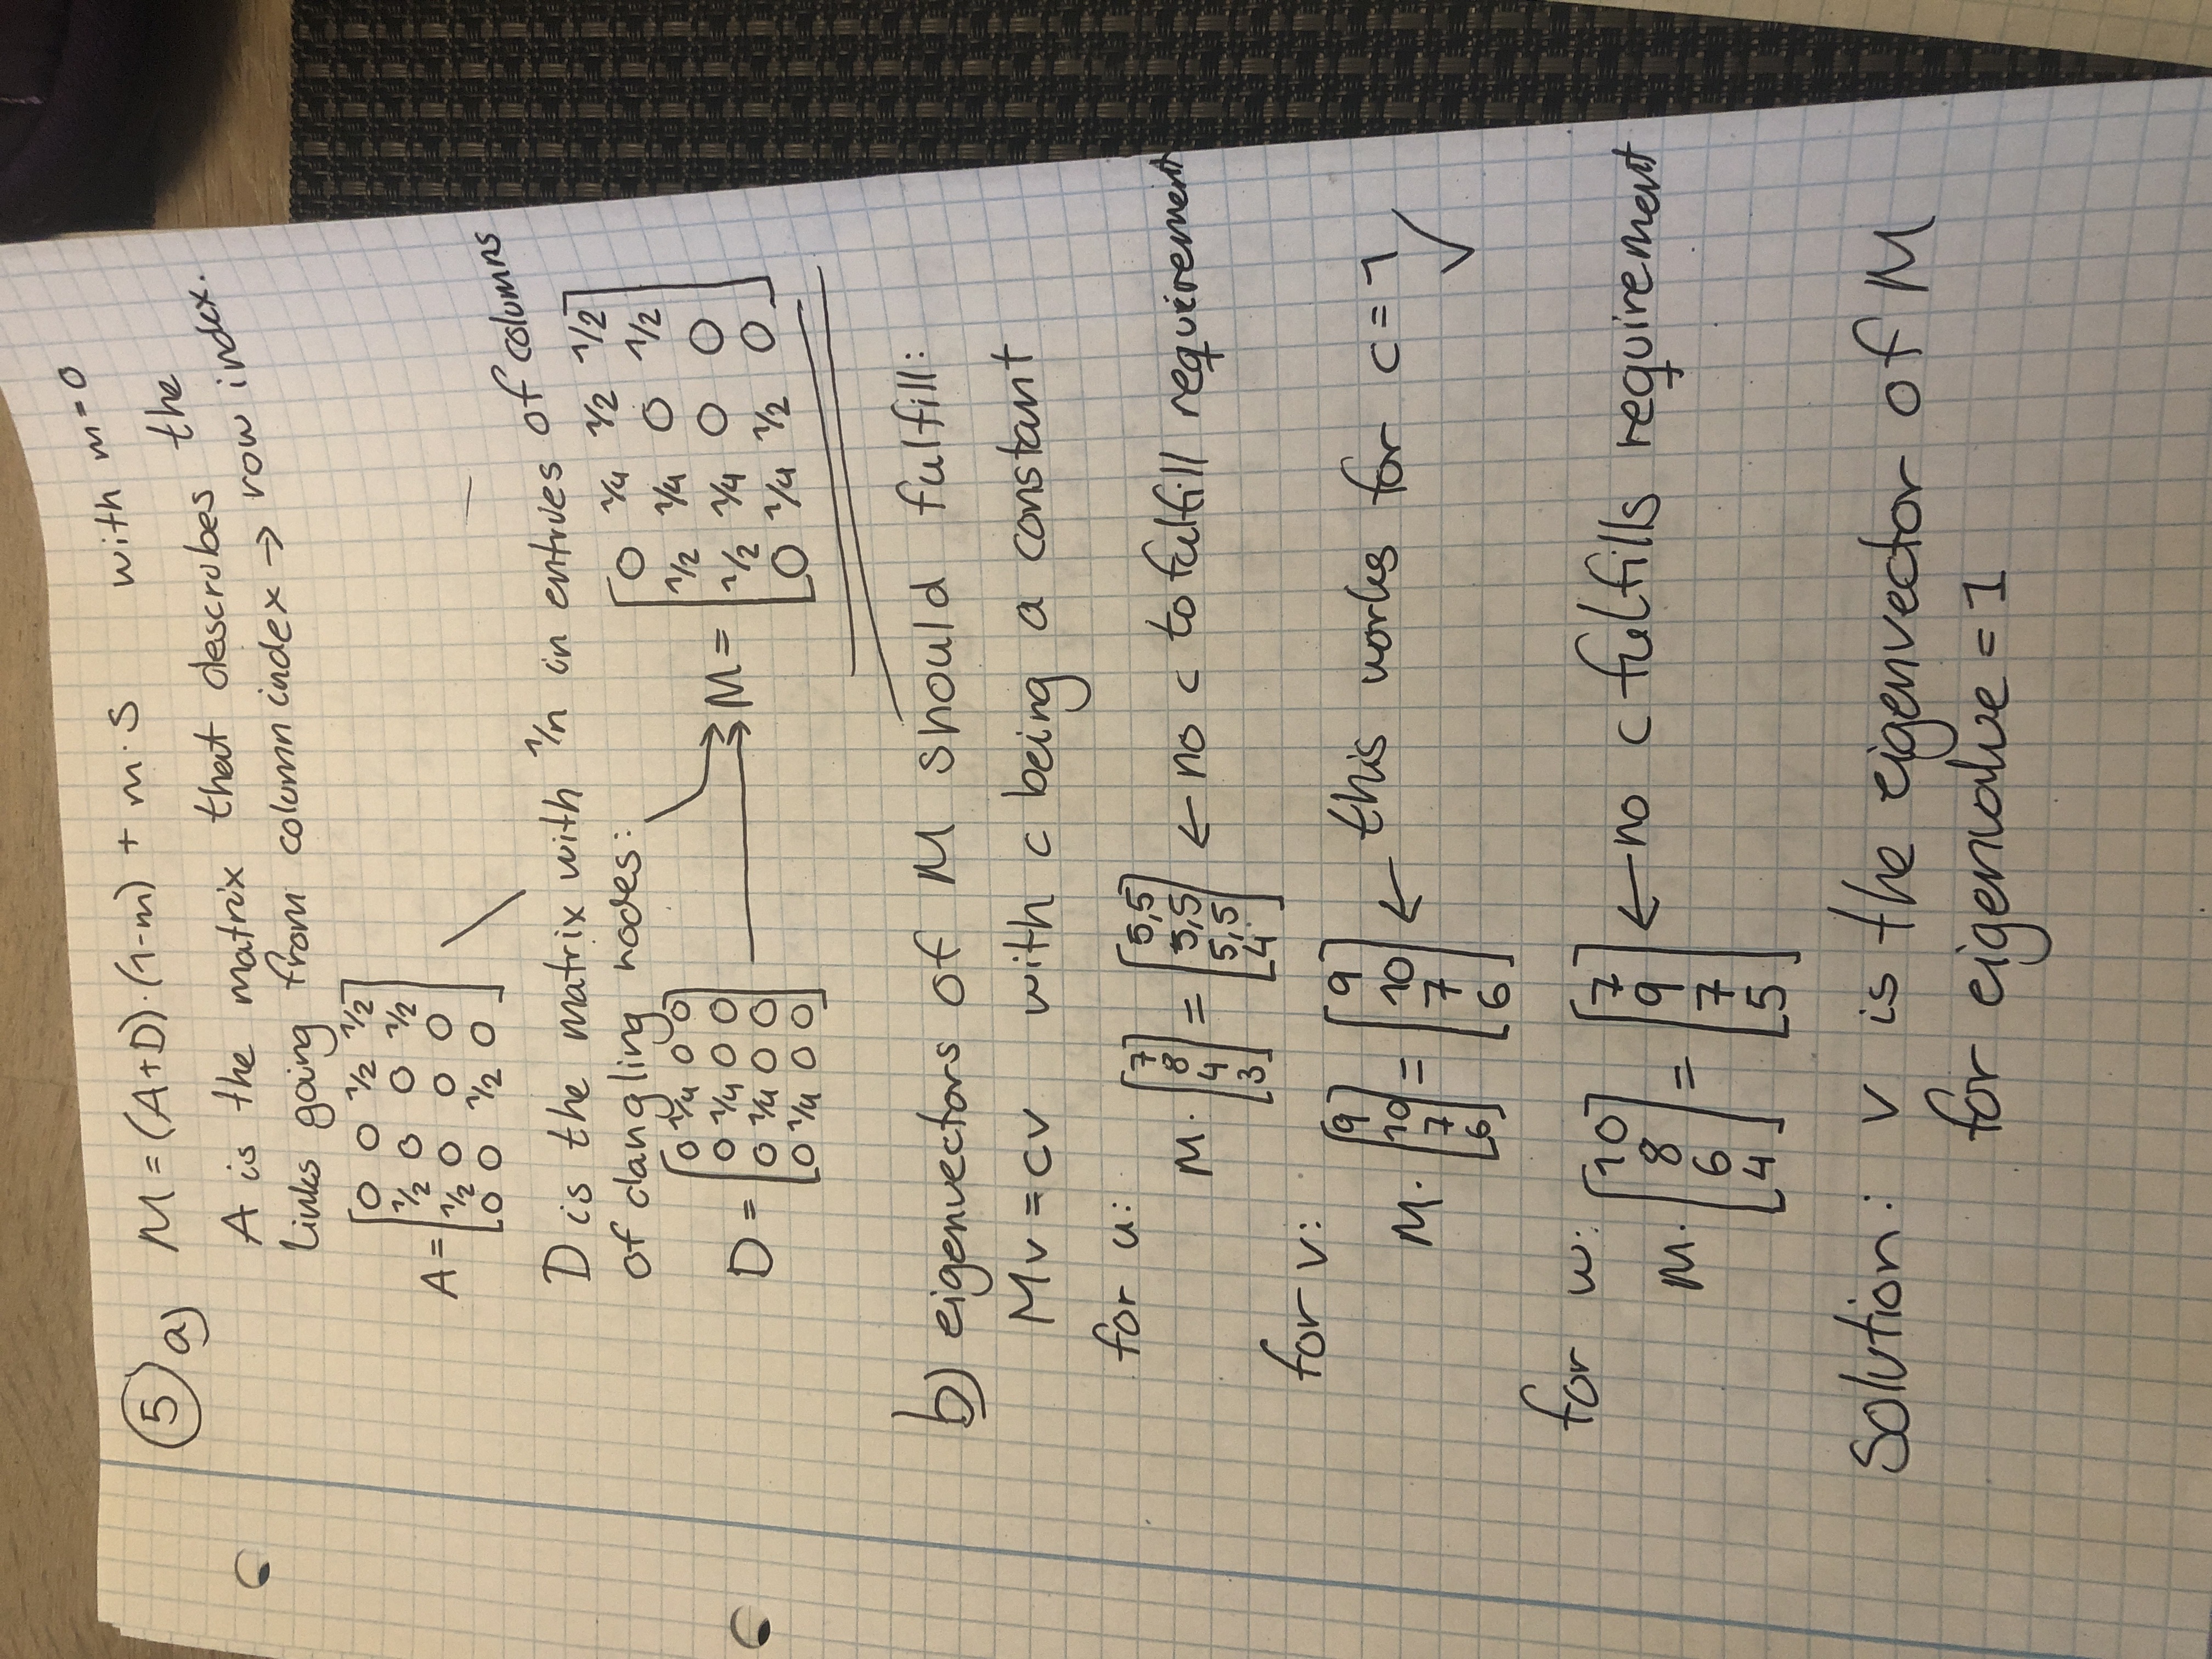 5 a) M = (A+D)·(1-m) + m·S with m=0
A is the matrix that describes the
links going from column index → row index.
A = [0 0 1/2 1/2
1/2 0 0 1/2
1/2 0 0 0
0 0 1/2 0]
D is the matrix with 1/n in entries of columns
of dangling nodes:
D = [0 1/4 0 0
0 1/4 0 0
0 1/4 0 0
0 1/4 0 0]
M = [0 1/4 1/2 1/2
1/2 1/4 0 1/2
1/2 1/4 0 0
0 1/4 1/2 0]
b) eigenvectors of M should fulfill:
Mv = cv with c being a constant
for u:
M · [7 8 4 3] = [5,5 5,5 5,5 4] ← no c to fulfill requirement
for v:
M · [9 10 7 6] = [9 10 7 6] ← this works for c = 1 ✓
for w:
M · [10 8 6 4] = [7 9 7 5] ← no c fulfills requirement
Solution: v is the eigenvector of M
for eigenvalue = 1